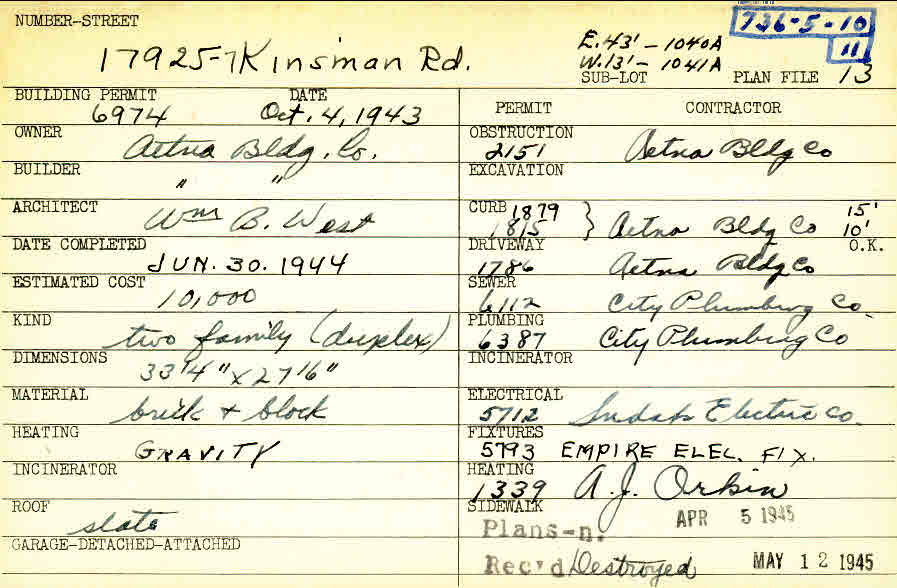 NUMBER-STREET
17925-7 Kinsman Rd.
E.43' - 1040A
W.13' - 1041A
736-5-10
11
SUB-LOT PLAN FILE 13
BUILDING PERMIT DATE
6974 Oct. 4, 1943
OWNER
Aetna Bldg. Co.
BUILDER
" "
ARCHITECT
Wm B. West
DATE COMPLETED
JUN. 30. 1944
ESTIMATED COST
10,000
KIND
two family (duplex)
DIMENSIONS
33'4" x 27'6"
MATERIAL
brick + block
HEATING
GRAVITY
INCINERATOR
ROOF
slate
GARAGE-DETACHED-ATTACHED
PERMIT CONTRACTOR
OBSTRUCTION
2151 Aetna Bldg Co
EXCAVATION
CURB 1879 15'
1815 } Aetna Bldg Co 10'
DRIVEWAY O.K.
1786 Aetna Bldg Co
SEWER
6112 City Plumbing Co.
PLUMBING
6387 City Plumbing Co
INCINERATOR
ELECTRICAL
5712 Electric Co.
FIXTURES
5793 EMPIRE ELEC. FIX.
HEATING
1339 A. J. Orkin
SIDEWALK
APR 5 1945
Plans-n.
Rec'd Destroyed MAY 12 1945